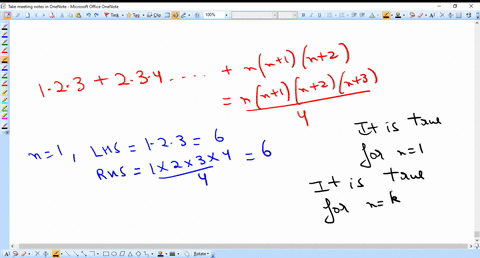 Take meeting notes in OneNote - Microsoft Office OneNote
100%
1·2·3 + 2·3·4 ..... + n(n+1)(n+2)
= n(n+1)(n+2)(n+3)
4
n=1, LHS = 1·2·3 = 6
RHS = 1×2×3×4 = 6
4
It is true
for n=1
It is true
for n=k
Rotate